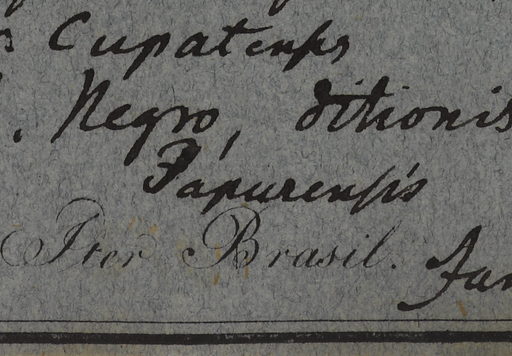 Cupatensis
Negro, ditionis
Japurensis
Iter Brasil. Jan